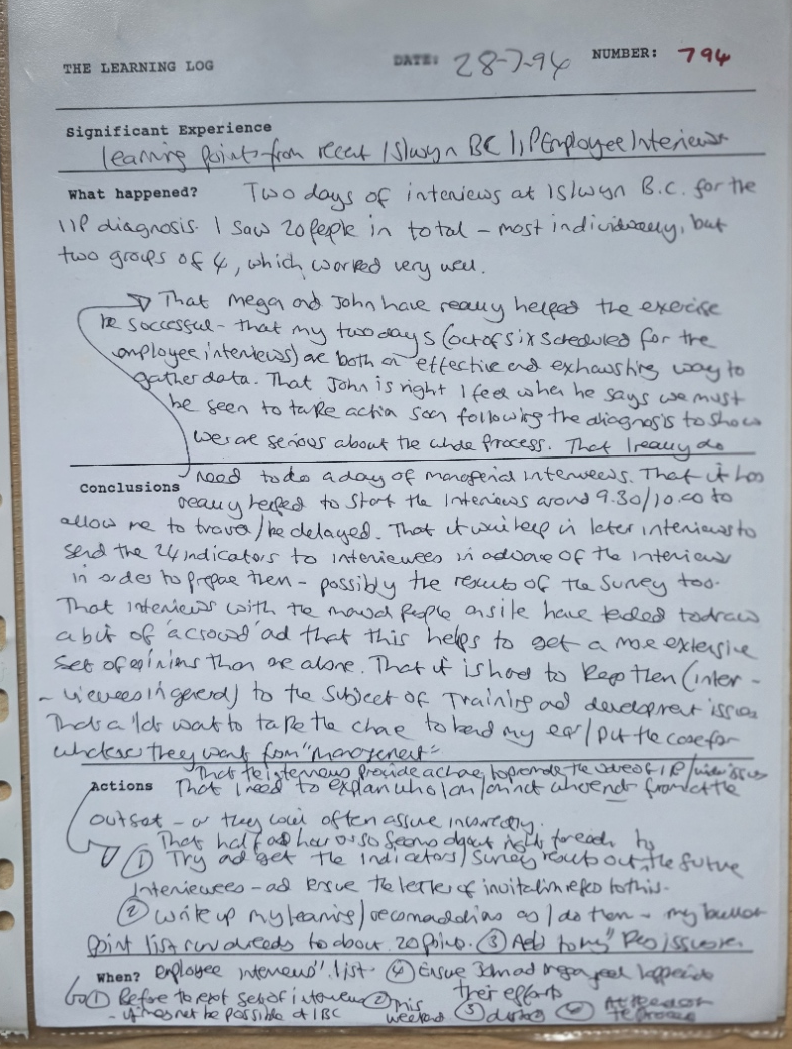 THE LEARNING LOG DATE: 28-7-94 NUMBER: 794
Significant Experience
Learning points from recent Islwyn BC IIP Employee Interviews
What happened? Two days of interviews at Islwyn B.C. for the
IIP diagnosis. I saw 20 people in total - most individually, but
two groups of 4, which worked very well.
That Megan and John have really helped the exercise
be successful - that my two days (out of six scheduled for the
employee interviews) are both an effective and exhausting way to
gather data. That John is right I feel when he says we must
be seen to take action soon following the diagnosis to show
we are serious about the whole process. That I really do
need to do a day of managerial interviews. That it has
Conclusions really helped to start the interviews around 9.30/10.00 to
allow me to travel/be delayed. That it will help in later interviews to
send the 24 indicators to interviewees in advance of the interview
in order to prepare them - possibly the results of the survey too.
That interviews with the manual people on site have tended to draw
a bit of 'a crowd' and that this helps to get a more extensive
set of opinions than one alone. That it is hard to keep them (inter-
-viewees in general) to the subject of Training and development issues
That a lot want to take the chance to bend my ear/put the case for
whatever they want from "management"
That the interviews provide a chance to promote the of IIP/
Actions That I need to explain who I am/am not from at the
outset - or they will often assume incorrectly.
That half an hour or so seems about right for each
① Try and get the indicators/survey results out to the future
interviewees - and ensure the letter of invitation refers to this.
② Write up my learning/recommendations as I do them - my bullet
point list to about 20 points. ③ Add to my "
When? employee interviews" list. ④ Ensure John and Megan
their efforts
① Before the next set of interviews ② This
- if not be possible at IBC weekend ③ ④